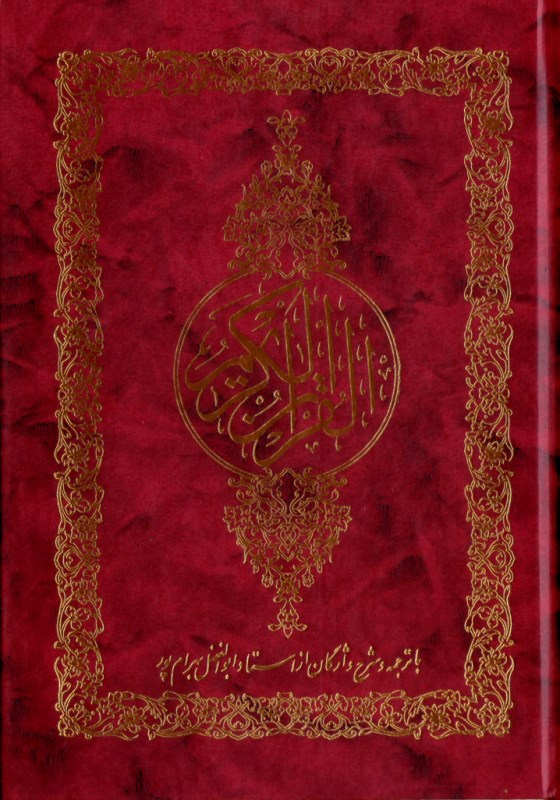 القرآن الكريم
با ترجمه و شرح واژگان از استاد ابوالفضل بهرام پور